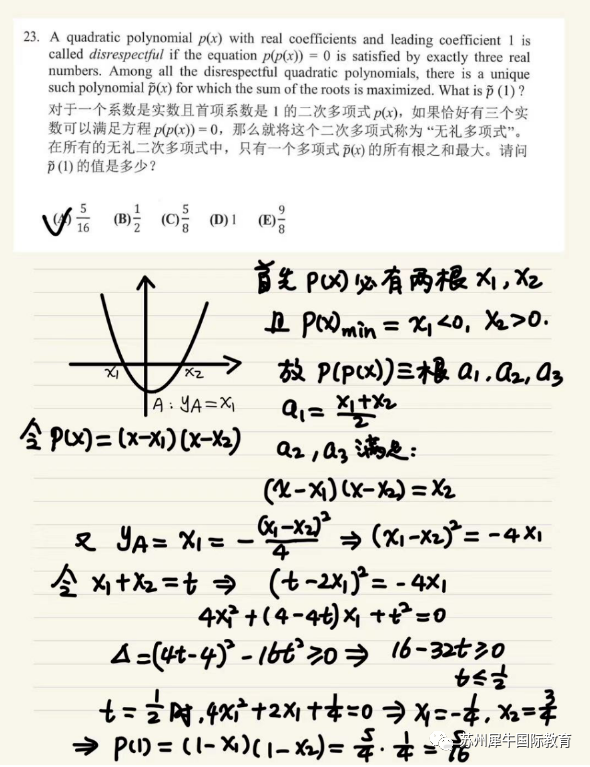 23. A quadratic polynomial p(x) with real coefficients and leading coefficient 1 is
called disrespectful if the equation p(p(x)) = 0 is satisfied by exactly three real
numbers. Among all the disrespectful quadratic polynomials, there is a unique
such polynomial p̃(x) for which the sum of the roots is maximized. What is p̃ (1) ?
对于一个系数是实数且首项系数是 1 的二次多项式 p(x)，如果恰好有三个实
数可以满足方程 p(p(x)) = 0，那么就将这个二次多项式称为 “无礼多项式”。
在所有的无礼二次多项式中，只有一个多项式 p̃(x) 的所有根之和最大。请问
p̃ (1) 的值是多少？
(A) 5/16 (B) 1/2 (C) 5/8 (D) 1 (E) 9/8
首先 P(x) 必有两根 x₁, x₂
且 P(x)min = x₁<0, x₂>0.
x₁ x₂
A: yA=x₁
故 P(P(x))三根 a₁, a₂, a₃
a₁ = (x₁+x₂)/2
令 P(x)=(x-x₁)(x-x₂)
a₂, a₃ 满足:
(x-x₁)(x-x₂)=x₂
又 yA = x₁ = -(x₁-x₂)²/4 ⇒ (x₁-x₂)² = -4x₁
令 x₁+x₂=t ⇒ (t-2x₁)² = -4x₁
4x₁²+(4-4t)x₁+t²=0
Δ=(4t-4)²-16t²≥0 ⇒ 16-32t≥0
t≤1/2
t=1/2时, 4x₁²+2x₁+1/4=0 ⇒ x₁=-1/4, x₂=3/4
⇒ P(1) = (1-x₁)(1-x₂) = 5/4 · 1/4 = 5/16
苏州犀牛国际教育